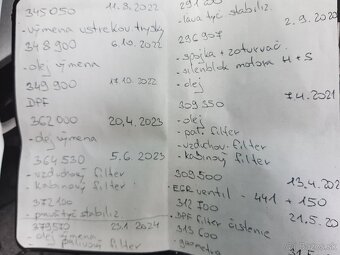 345050 11.8.2022
- výmena vstrekov. trysky
348900 6.10.2022
- olej výmena
349900 17.10.2022
DPF
362000 20.4.2023
- olej výmena
364530 5.6.2023
- vzduchový filter
- kabinový filter
372100
- pravý tyč stabiliz
379510 23.1.2024
- olej výmena
palivový filter
291200
- ľavá tyč stabiliz.
2.9.2020
296907
- spojka + zotrvač.
- silenblok motora H+S
- olej
309350 7.4.2021
- olej
- pal. filter
- vzduchov. filter
- kabínový filter
309500 13.4.202
- EGR ventil - 441 + 150
312700 21.5.20
DPF filter čistenie
313600
- geometria 31.5
sk